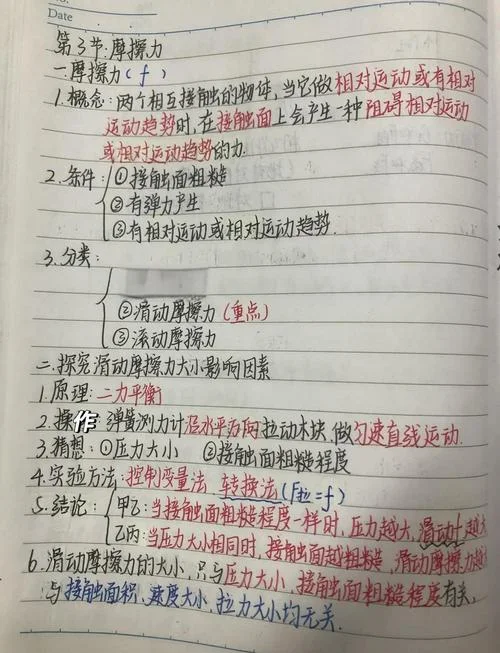 Date
第3节:摩擦力
一.摩擦力(f)
1.概念:两个相互接触的物体,当它做相对运动或有相对
运动趋势时,在接触面上会产生一种阻碍相对运动
或相对运动趋势的力.
2.条件:①接触面粗糙
②有弹力产生
③有相对运动或相对运动趋势.
3.分类:
②滑动摩擦力(重点)
③滚动摩擦力
二.探究滑动摩擦力大小影响因素
1.原理:二力平衡
2.操作:弹簧测力计沿水平方向拉动木块,做匀速直线运动.
3.猜想:①压力大小 ②接触面粗糙程度
4.实验方法:控制变量法 转换法(F拉=f)
5.结论:甲乙:当接触面粗糙程度一样时,压力越大,滑动f越大
乙丙:当压力大小相同时,接触面越粗糙,滑动摩擦力越
6.滑动摩擦力的大小,只与压力大小,接触面粗糙程度有关,
与接触面积,速度大小,拉力大小均无关.